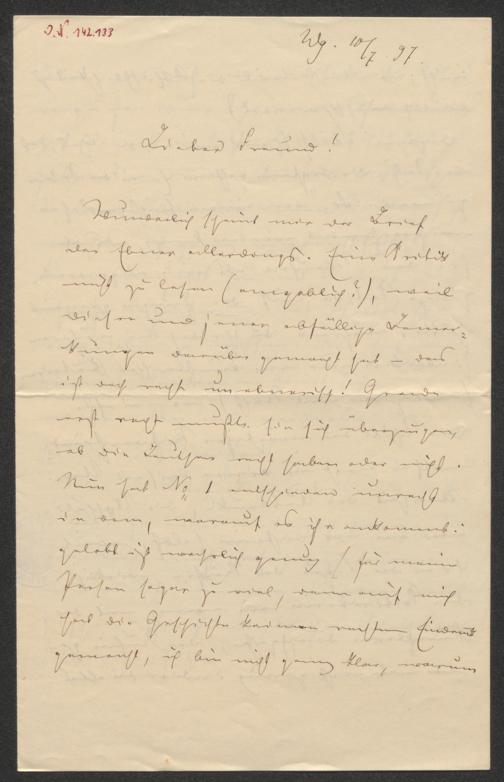 J.N. 142.133
Wg. 10/7 97
Lieber Freund!
Wunderlich scheint mir der Brief
der Ebner allerdings. Eine Kritik
nicht zu lesen (angeblich?), weil
dieser und jener abfällige Bemer-
kungen darüber gemacht hat – das
ist doch recht unebnerisch! Gerade
erst recht mußte sie sich überzeugen,
ob die Leutchen recht haben oder nicht.
Nun hat No 1 entschieden unrecht
in dem, worauf es ihr ankommt:
gelobt ist wahrlich genug (für meine
Person sogar zu viel, denn auf mich
hat die Geschichte keinen rechten Eindruck
gemacht, ich bin nicht ganz klar, warum